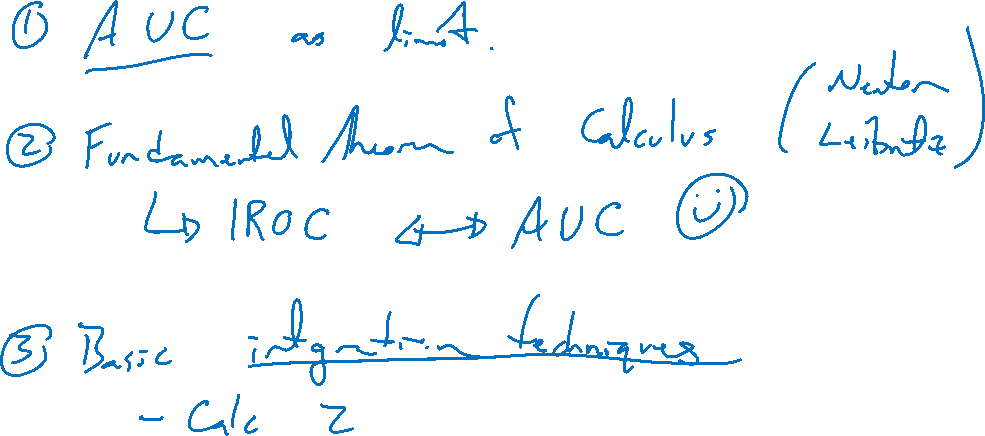 ① AUC as limit.
② Fundamental theorem of Calculus (Newton Leibnitz)
↳ IROC ↔ AUC ☺
③ Basic integration techniques
- Calc 2